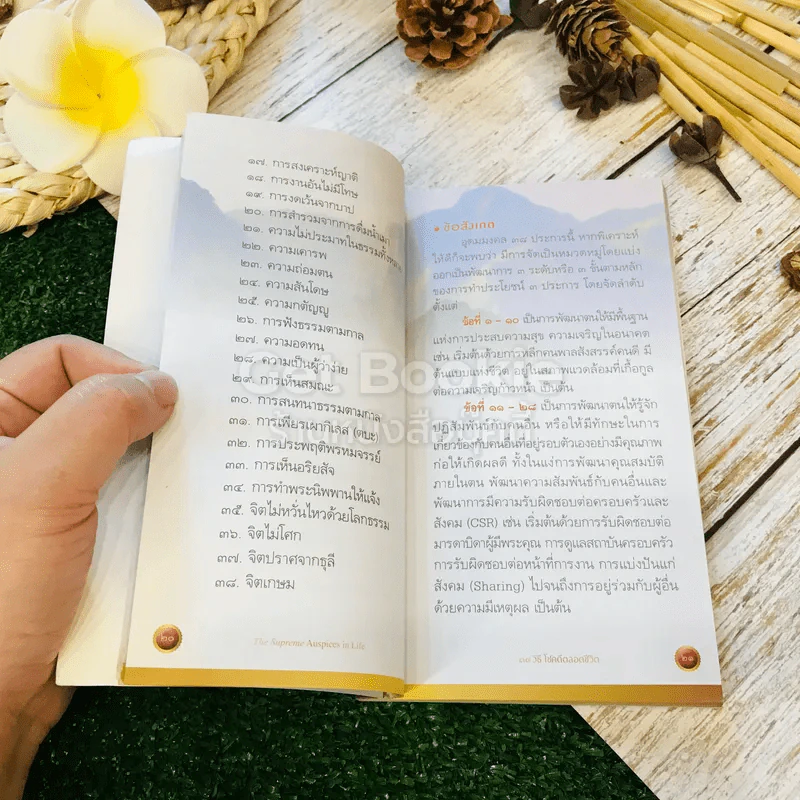 ๑๗. การสงเคราะห์ญาติ
๑๘. การงานอันไม่มีโทษ
๑๙. การงดเว้นจากบาป
๒๐. การสำรวมจากการดื่มน้ำเมา
๒๑. ความไม่ประมาทในธรรมทั้งหลาย
๒๒. ความเคารพ
๒๓. ความถ่อมตน
๒๔. ความสันโดษ
๒๕. ความกตัญญู
๒๖. การฟังธรรมตามกาล
๒๗. ความอดทน
๒๘. ความเป็นผู้ว่าง่าย
๒๙. การเห็นสมณะ
๓๐. การสนทนาธรรมตามกาล
๓๑. การเพียรเผากิเลส (ตบะ)
๓๒. การประพฤติพรหมจรรย์
๓๓. การเห็นอริยสัจ
๓๔. การทำพระนิพพานให้แจ้ง
๓๕. จิตไม่หวั่นไหวด้วยโลกธรรม
๓๖. จิตไม่โศก
๓๗. จิตปราศจากธุลี
๓๘. จิตเกษม
๒๐
The Supreme Auspices in Life
ข้อสังเกต
อุดมมงคล ๓๘ ประการนี้ หากพิเคราะห์
ให้ดีก็จะพบว่า มีการจัดเป็นหมวดหมู่โดยแบ่ง
ออกเป็นพัฒนาการ ๓ ระดับหรือ ๓ ชั้นตามหลัก
ของการทำประโยชน์ ๓ ประการ โดยจัดลำดับ
ตั้งแต่
ข้อที่ ๑ - ๑๐ เป็นการพัฒนาตนให้มีพื้นฐาน
แห่งการประสบความสุข ความเจริญในอนาคต
เช่น เริ่มต้นด้วยการหลีกคนพาลสังสรรค์คนดี มี
ต้นแบบแห่งชีวิต อยู่ในสภาพแวดล้อมที่เกื้อกูล
ต่อความเจริญก้าวหน้า เป็นต้น
ข้อที่ ๑๑ - ๒๘ เป็นการพัฒนาตนให้รู้จัก
ปฏิสัมพันธ์กับคนอื่น หรือให้มีทักษะในการ
เกี่ยวข้องกับคนอื่นที่อยู่รอบตัวเองอย่างมีคุณภาพ
ก่อให้เกิดผลดี ทั้งในแง่การพัฒนาคุณสมบัติ
ภายในตน พัฒนาความสัมพันธ์กับคนอื่นและ
พัฒนาการมีความรับผิดชอบต่อครอบครัวและ
สังคม (CSR) เช่น เริ่มต้นด้วยการรับผิดชอบต่อ
มารดาบิดาผู้มีพระคุณ การดูแลสถาบันครอบครัว
การรับผิดชอบต่อหน้าที่การงาน การแบ่งปันแก่
สังคม (Sharing) ไปจนถึงการอยู่ร่วมกับผู้อื่น
ด้วยความมีเหตุผล เป็นต้น
๓๘ วิธี โชคดีตลอดชีวิต
๒๑